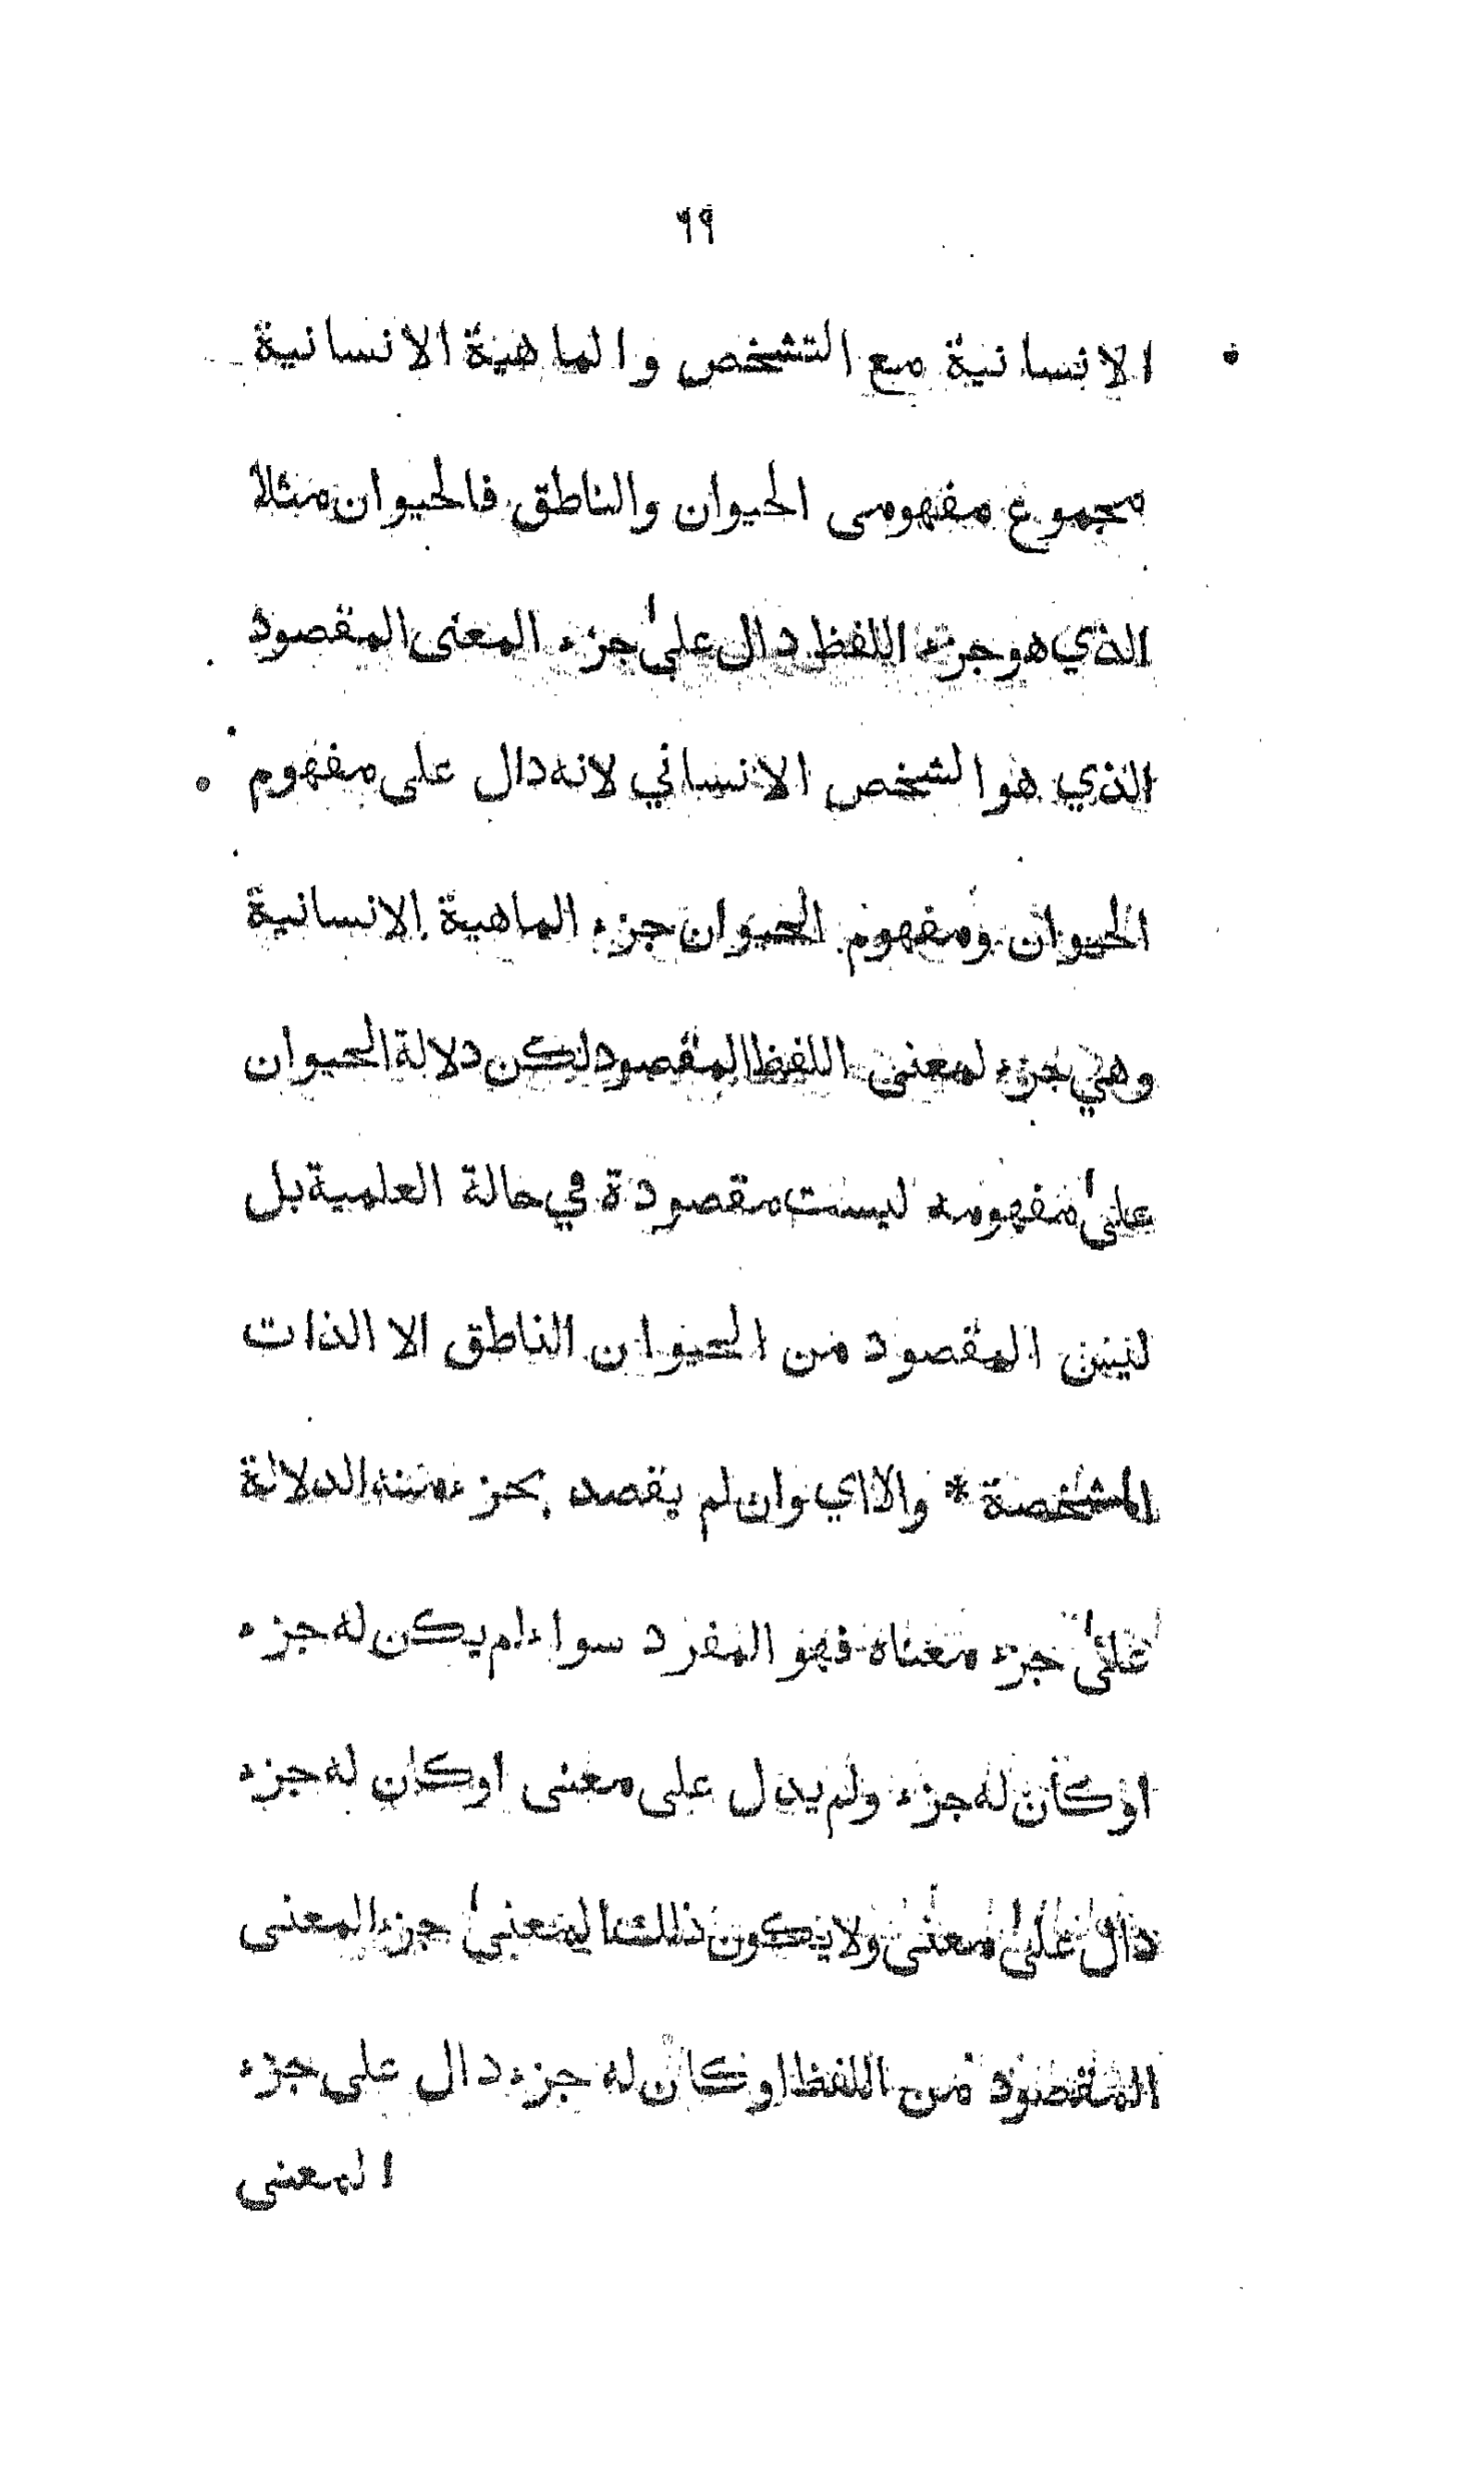 ٦٩
الانسانية مع التشخص والماهية الانسانية
مجموع مفهومى الحيوان والناطق فالحيوان مثلا
الذي هو جزء اللفظ دال على جزء المعنى المقصود
الذي هو الشخص الانساني لانه دال على مفهوم
الحيوان ومفهوم الحيوان جزء الماهية الانسانية
وهي جزء لمعنى اللفظ المقصود لكن دلالة الحيوان
على مفهومه ليست مقصودة في حالة العلمية بل
ليس المقصود من الحيوان الناطق الا الذات
المشخصة * والا اي وان لم يقصد بجزء منه الدلالة
على جزء معناه فهو المفرد سواء لم يكن له جزء
او كان له جزء ولم يدل على معنى او كان له جزء
دال على معنى ولا يكون ذلك المعنى جزء المعنى
المقصود من اللفظ او كان له جزء دال على جزء
المعنى